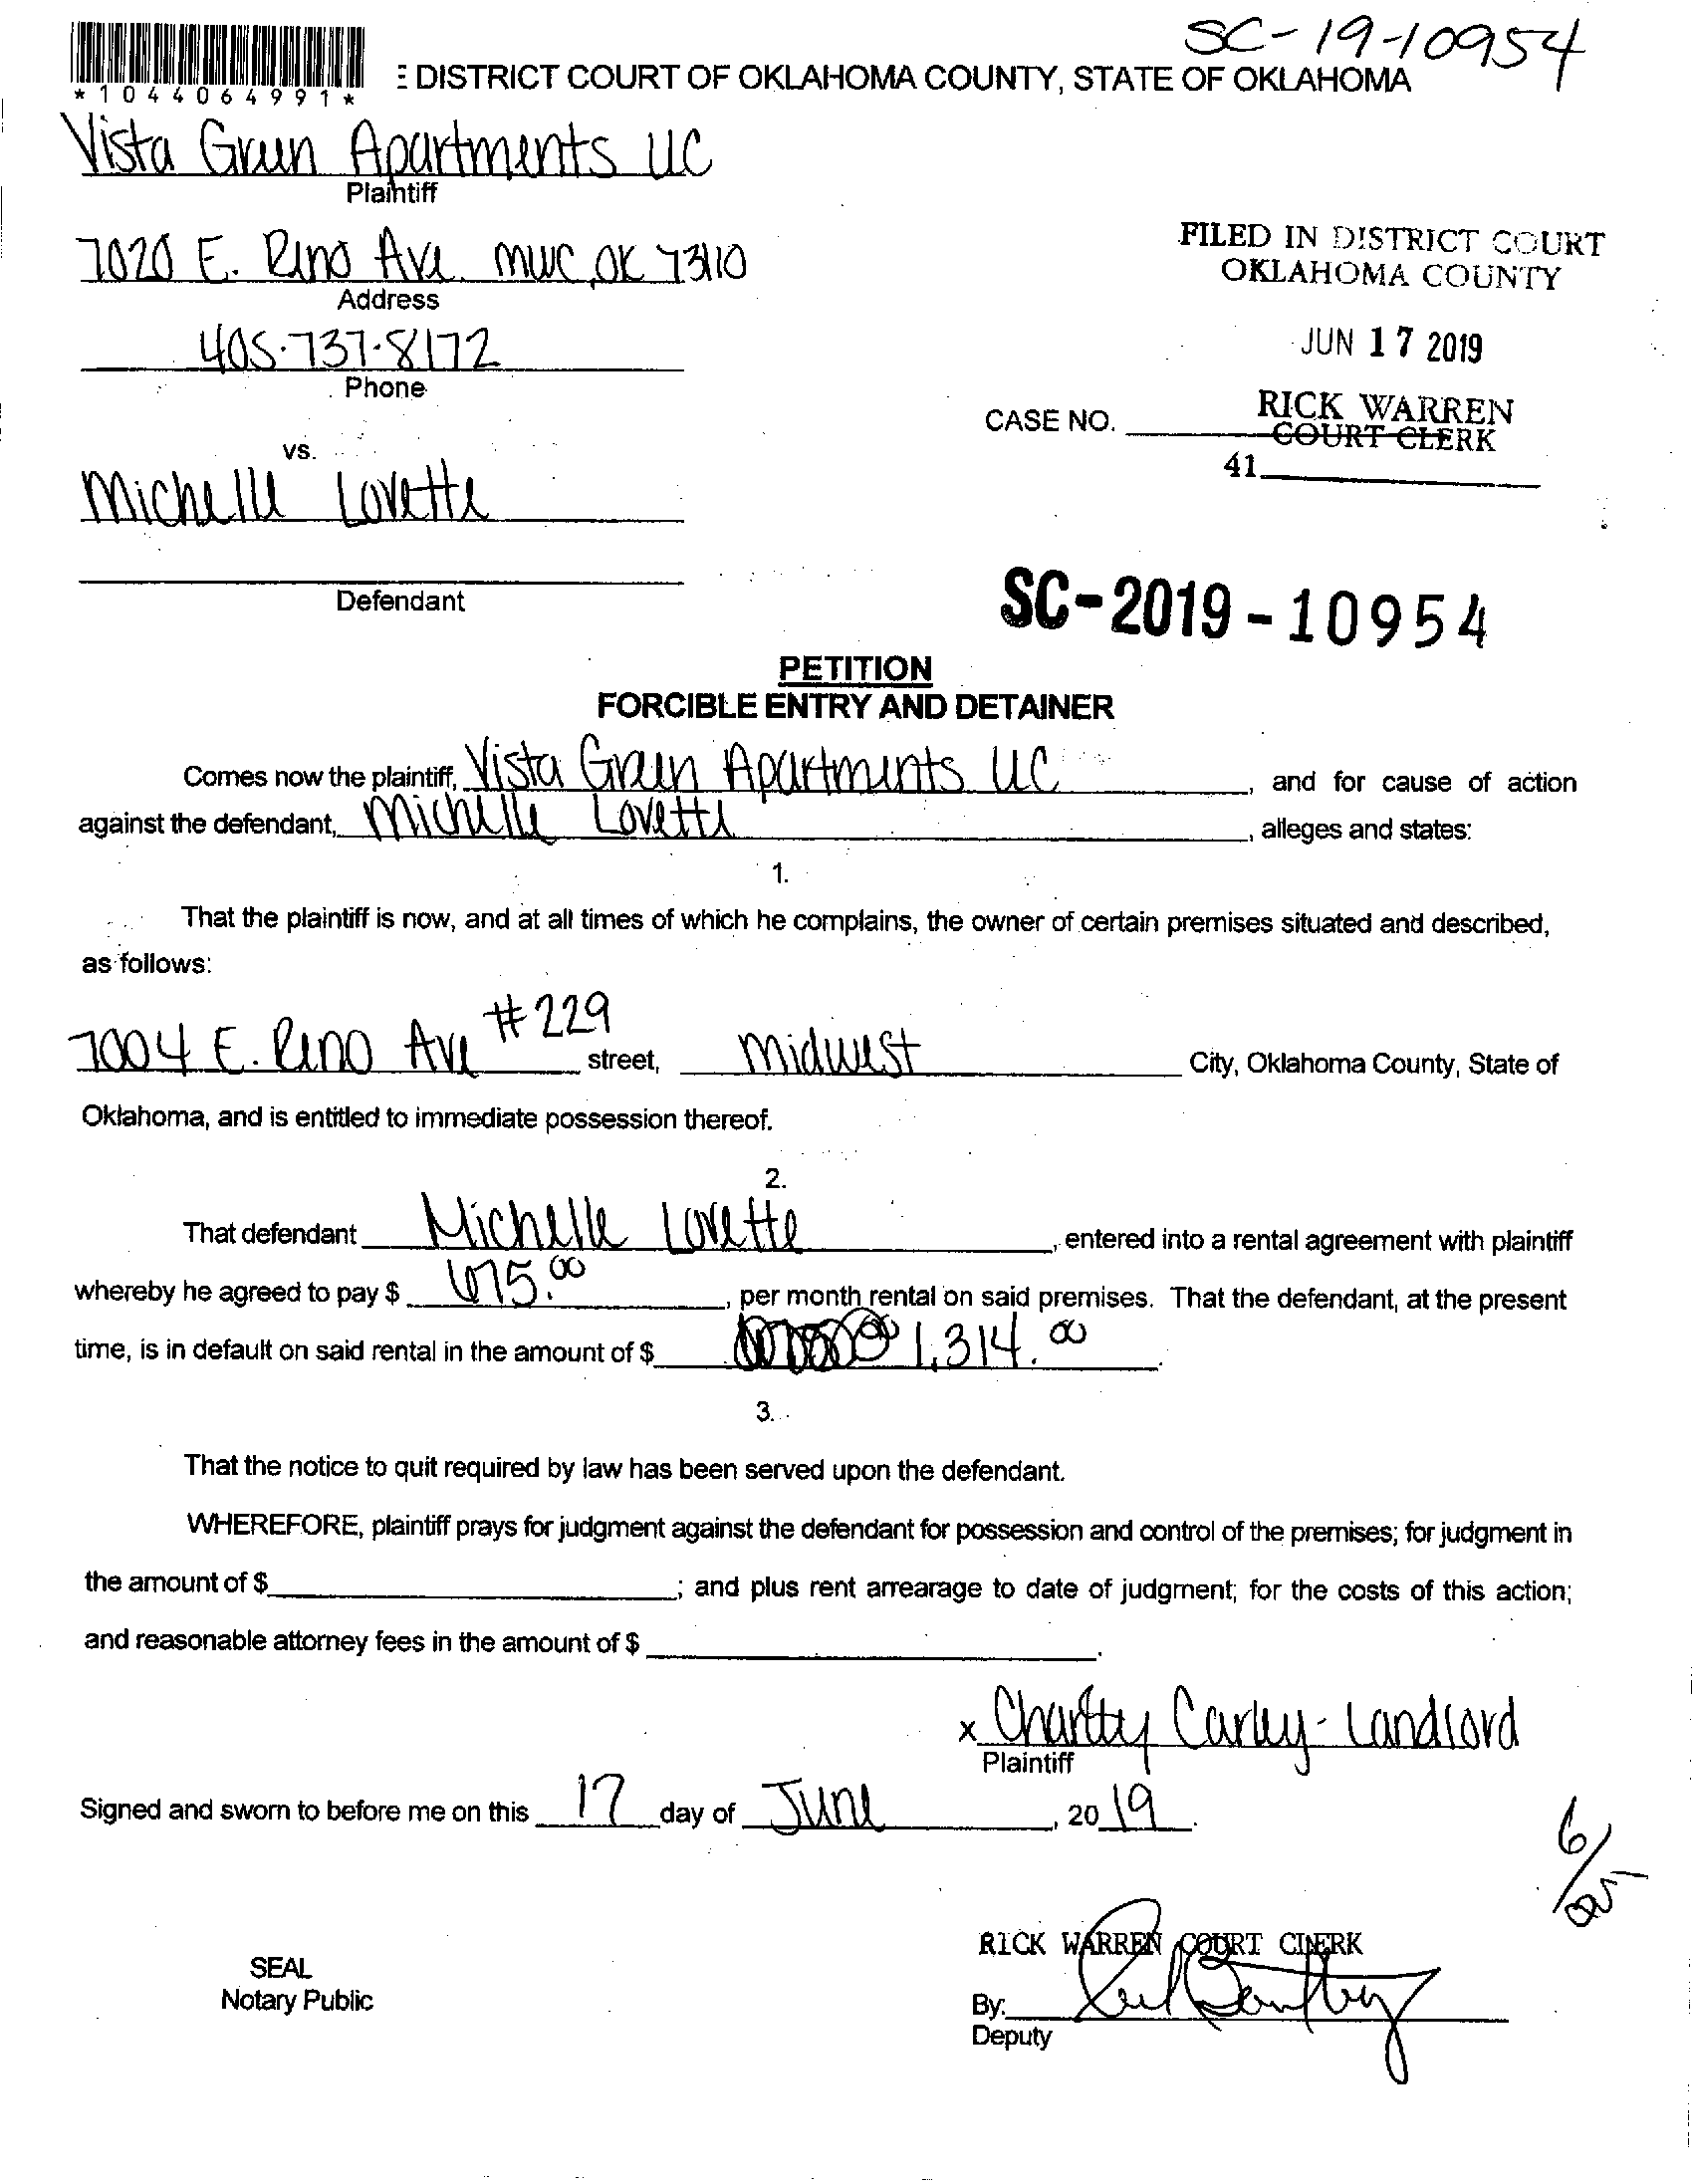 SC-19-10954
*1044064991*
E DISTRICT COURT OF OKLAHOMA COUNTY, STATE OF OKLAHOMA
Vista Green Apartments LLC
Plaintiff
7020 E. Reno Ave. MWC, OK 73110
Address
FILED IN DISTRICT COURT
OKLAHOMA COUNTY
405-737-8172
Phone
JUN 17 2019
RICK WARREN
COURT CLERK
CASE NO.
41
vs.
Michelle Lovette
Defendant
SC-2019-10954
PETITION
FORCIBLE ENTRY AND DETAINER
Comes now the plaintiff, Vista Green Apartments LLC, and for cause of action
against the defendant, Michelle Lovette, alleges and states:
1.
That the plaintiff is now, and at all times of which he complains, the owner of certain premises situated and described,
as follows:
7004 E. Reno Ave #229 street, Midwest City, Oklahoma County, State of
Oklahoma, and is entitled to immediate possession thereof.
2.
That defendant Michelle Lovette, entered into a rental agreement with plaintiff
whereby he agreed to pay $ 675.00, per month rental on said premises. That the defendant, at the present
time, is in default on said rental in the amount of $ 1,314.00.
3.
That the notice to quit required by law has been served upon the defendant.
WHEREFORE, plaintiff prays for judgment against the defendant for possession and control of the premises; for judgment in
the amount of $ ; and plus rent arrearage to date of judgment; for the costs of this action;
and reasonable attorney fees in the amount of $ .
x Charity Carley-Landlord
Plaintiff
Signed and sworn to before me on this 17 day of June, 2019.
RICK WARREN COURT CLERK
SEAL
Notary Public
By:
Deputy